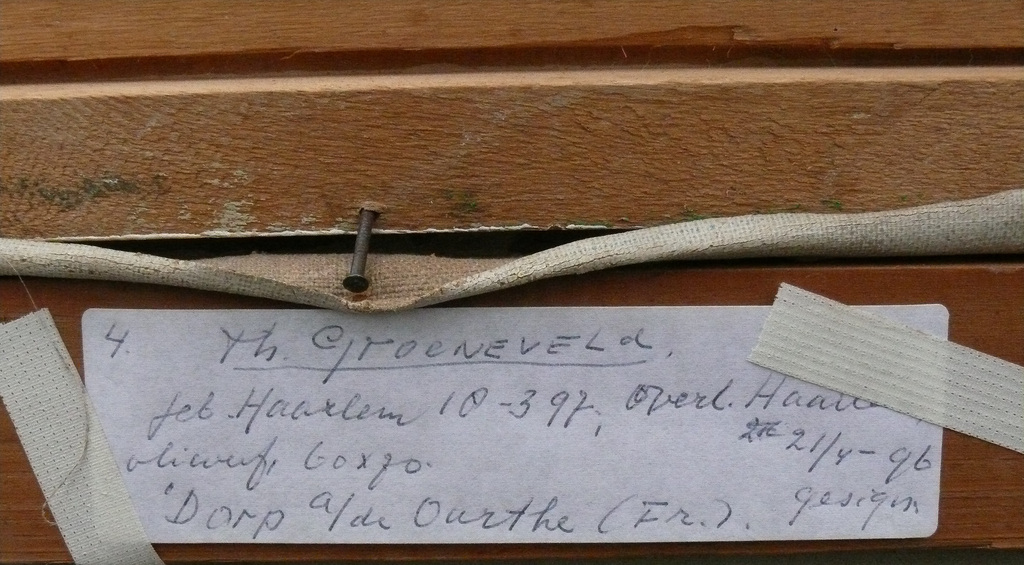 4. Th. GROENEVELd.
geb. Haarlem 10-3 97, Overl. Haarle
21/4-96
olieverf, 60x70.
gesign
'Dorp a/de Ourthe (Fr.).